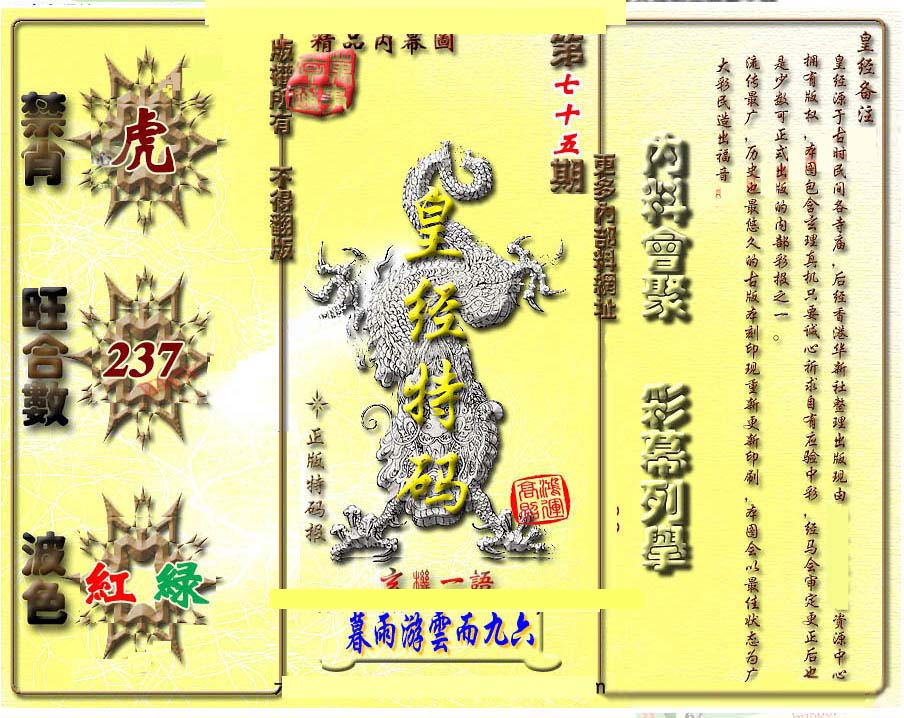 禁肖
虎
旺合數
237
波色
紅 綠
精品内幕圖
版權所有 不得翻版
第七十五期
更多内部料網址
皇经特码
正版特码报
鴻運高照
玄機一語
暮雨游雲而九六
内料會聚
彩幕列舉
皇经备注
皇经源于古时民间各寺庙,后经香港华新社整理出版现由
资源中心
拥有版权,本图包含玄理真机只要诚心祈求自有应验中彩,经马会审定更正后也
是少数可正式出版的内部彩报之一。
流传最广,历史也最悠久的古版本刻印现重新更新印刷,本图会以最佳状态为广
大彩民造出福音